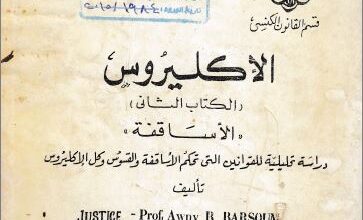 قسم القانون الكنسى
الإكليروس
(الكتاب الثانى)
«الأساقفة»
دراسة تحليلية للقوانين التى تحكم الأساقفة والقسوس وكل الإكليروس
تأليف
JUSTICE - Prof. Awny B. BARSOUM